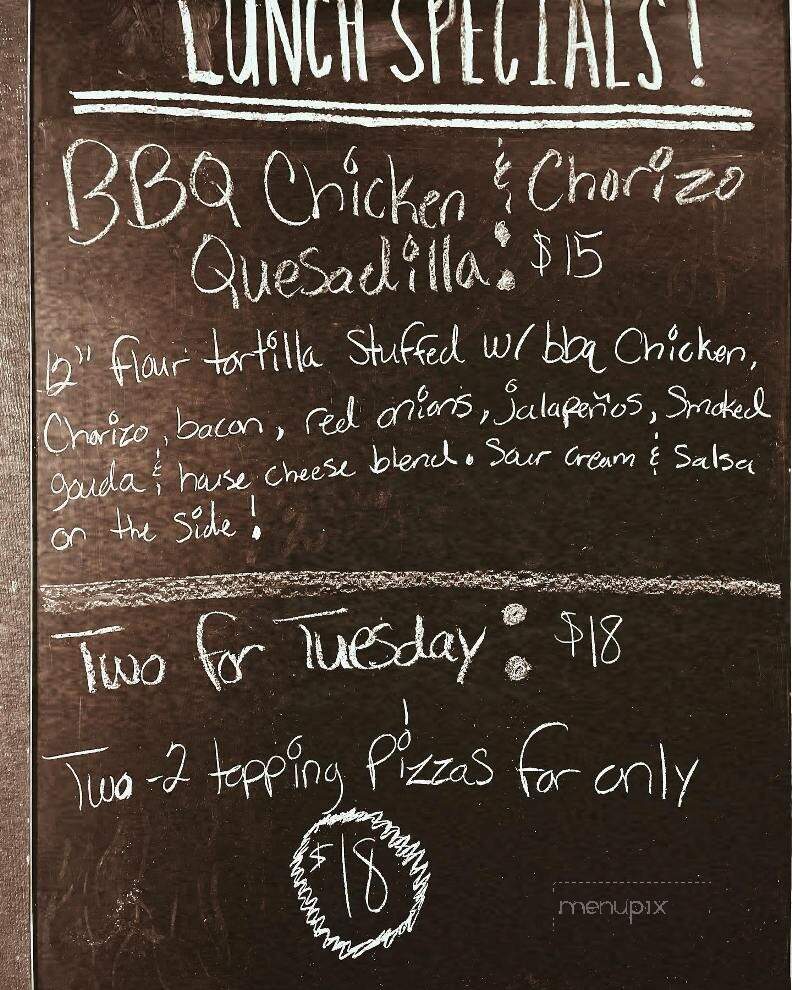 LUNCH SPECIALS!
BBQ Chicken & Chorizo
Quesadilla: $15
12" flour tortilla Stuffed w/ bbq Chicken,
Chorizo, bacon, red onions, jalapeños, Smoked
gouda & house cheese blend. Sour cream & Salsa
on the Side!
Two for Tuesday: $18
Two - 2 topping Pizzas for only
$18
menupix